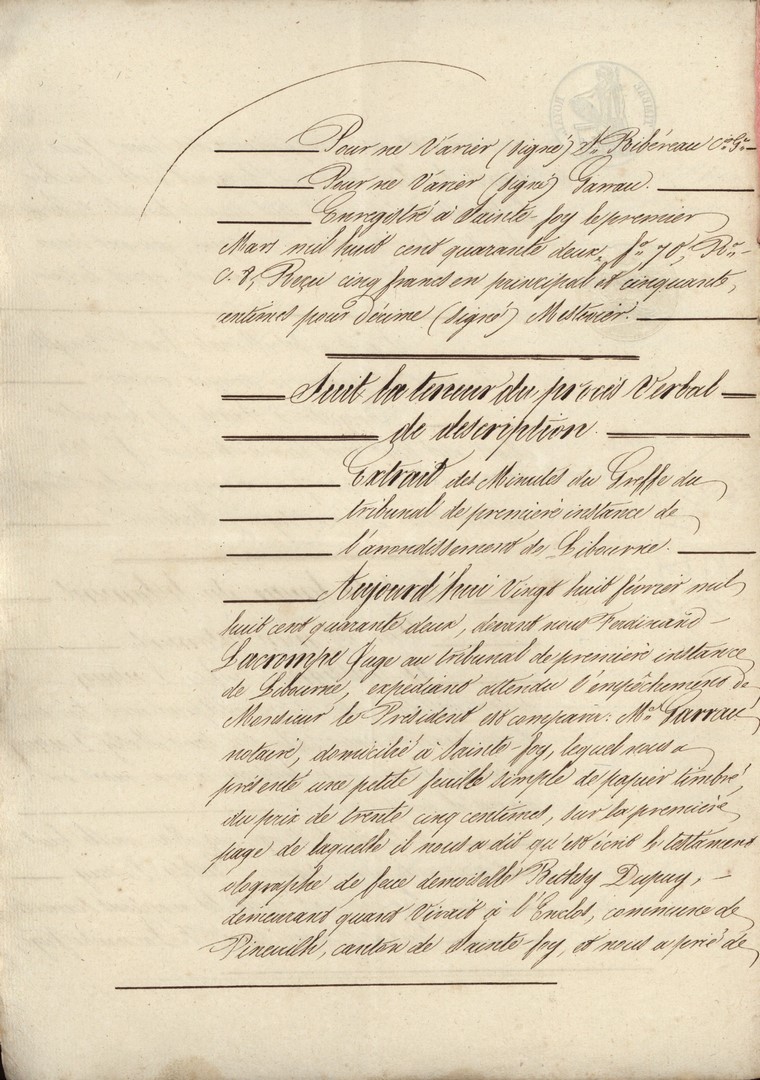 Pour ne varier (signé) St Ribéreau
Pour ne varier (signé) Garrau.
Enregistré à Sainte-foy le premier
Mars mil huit cent quarante deux, fo 70, Ro
C. 8, Reçu cinq francs en principal et cinquante
centimes pour décime (signé) Mestivier.
Suit la teneur du procès Verbal
de description.
Extrait des Minutes du Greffe du
tribunal de première instance de
l'arrondissement de Libourne.
Aujourd'hui vingt huit février mil
huit cent quarante deux, devant nous Ferdinand
Lacrompe Juge au tribunal de première instance
de Libourne, expédiant attendu l'empêchement de
Monsieur le Président est comparu: Me Garrau
notaire, domicilié à Sainte-foy, lequel nous a
présenté une petite feuille simple de papier timbré,
du prix de trente cinq centimes, sur la première
page de laquelle il nous a dit qu'est écrit le testament
olographe de feue demoiselle Bethsy Dupuy,
demeurant quant vivait à l'Enclos, commune de
Pineuilh, canton de Sainte-foy, et nous a prié de